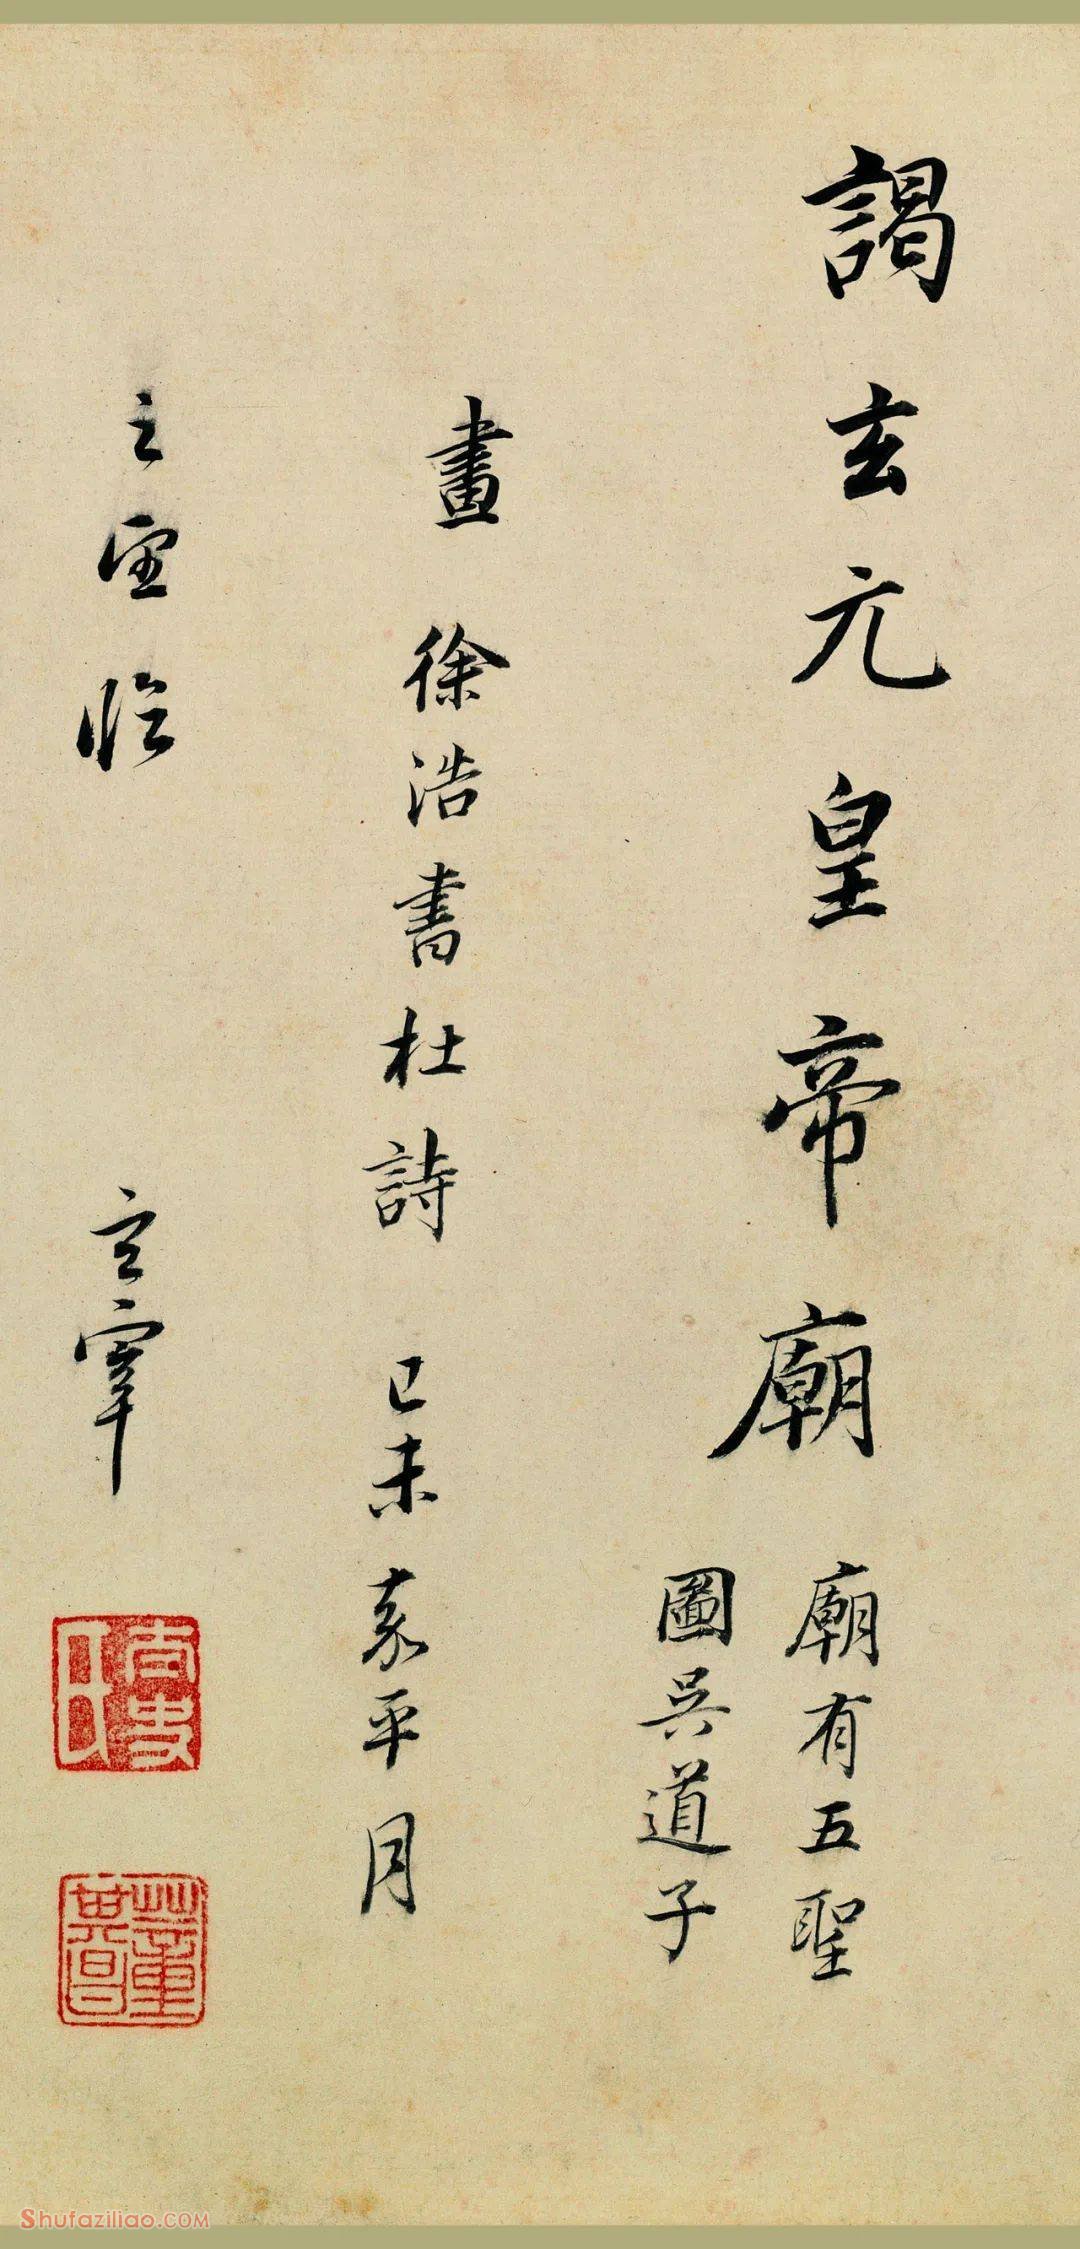 謁玄元皇帝廟
廟有五聖
圖吳道子
畫 徐浩書杜詩 己未嘉平月
之望臨 玄宰
太史氏
董其昌
Shufaziliao.COM